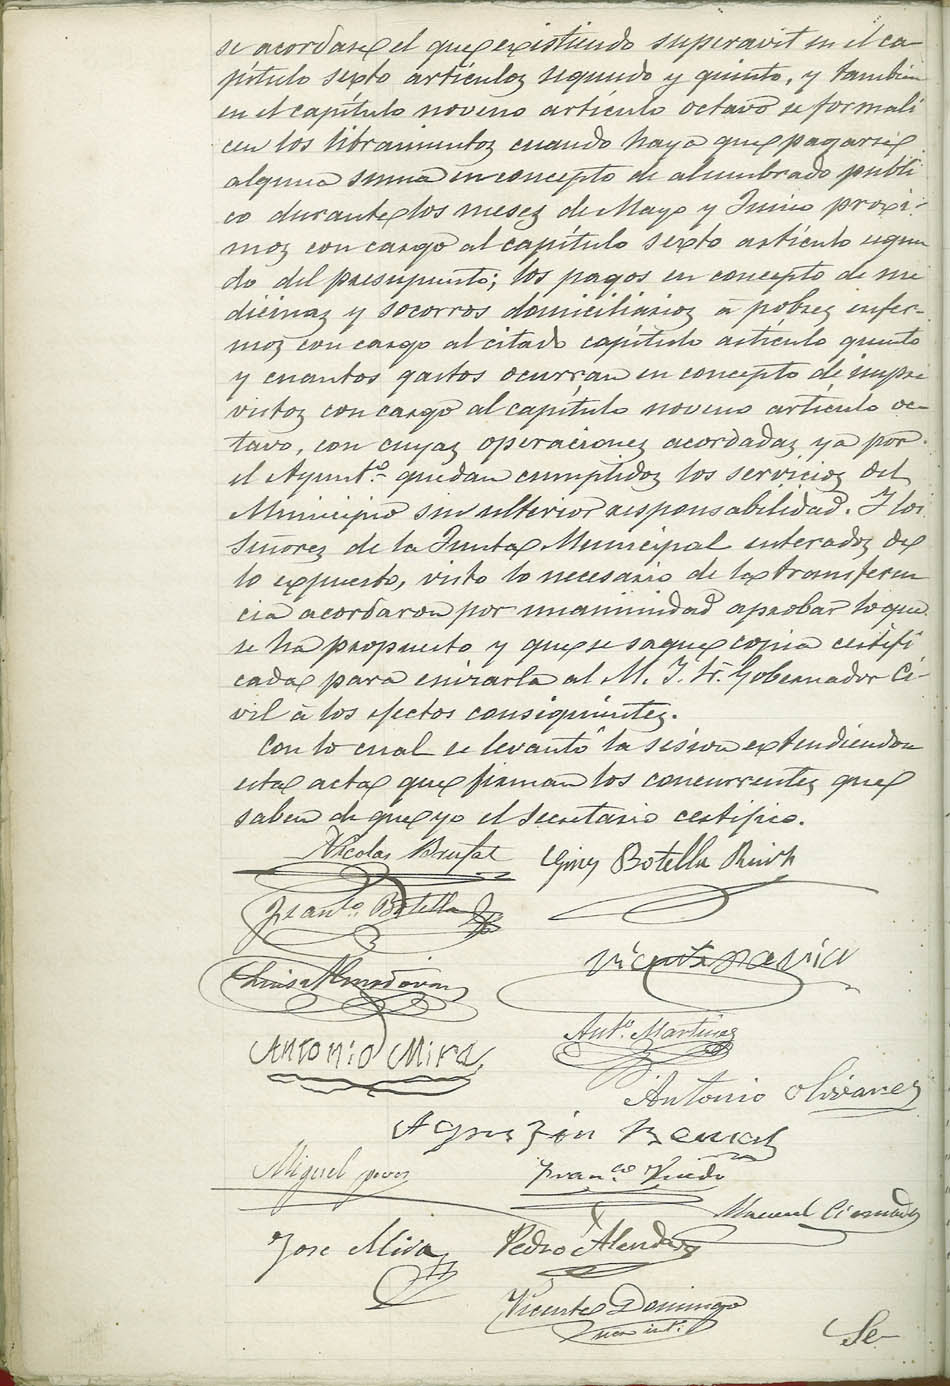 se acordase el que existiendo superavit en el ca-
pítulo sexto artículos segundo y quinto, y tambien
en el capítulo noveno artículo octavo se formali
cen los libramientos cuando haya que pagarse
alguna suma en concepto de alumbrado públi
co durante los meses de Mayo y Junio proxi-
mos con cargo al capítulo sexto artículo segun
do del presupuesto; los pagos en concepto de me
dicinas y socorros domiciliarios á pobres enfer-
mos con cargo al citado capítulo artículo quinto
y cuantos gastos ocurran en concepto de impre
vistos con cargo al capítulo noveno artículo oc-
tavo, con cuyas operaciones acordadas ya por
el Ayuntº. quedan cumplidos los servicios del
Municipio sin ulterior responsabilidad. Y los
Señores de la Junta Municipal enterados de
lo expuesto, visto lo necesario de la transferen
cia acordaron por unanimidad aprobar lo que
se ha propuesto y que se saque copia certifi
cada para enviarla al M. I. Sr. Gobernador Ci-
vil á los efectos consiguientes.
Con lo cual se levantó la sesion extendiendose
esta acta que firman los concurrentes que
saben de que yo el Secretario certifico.
Nicolas Brufal Gines Botella
Franco. Botella
Vicente
Luis Almodovar
Antº. Martinez
Antonio Mira
Antonio Olivares
Agustin
Miguel Franco.
Manuel
Jose Mira Pedro Alendes
Vicente Domingo
Se